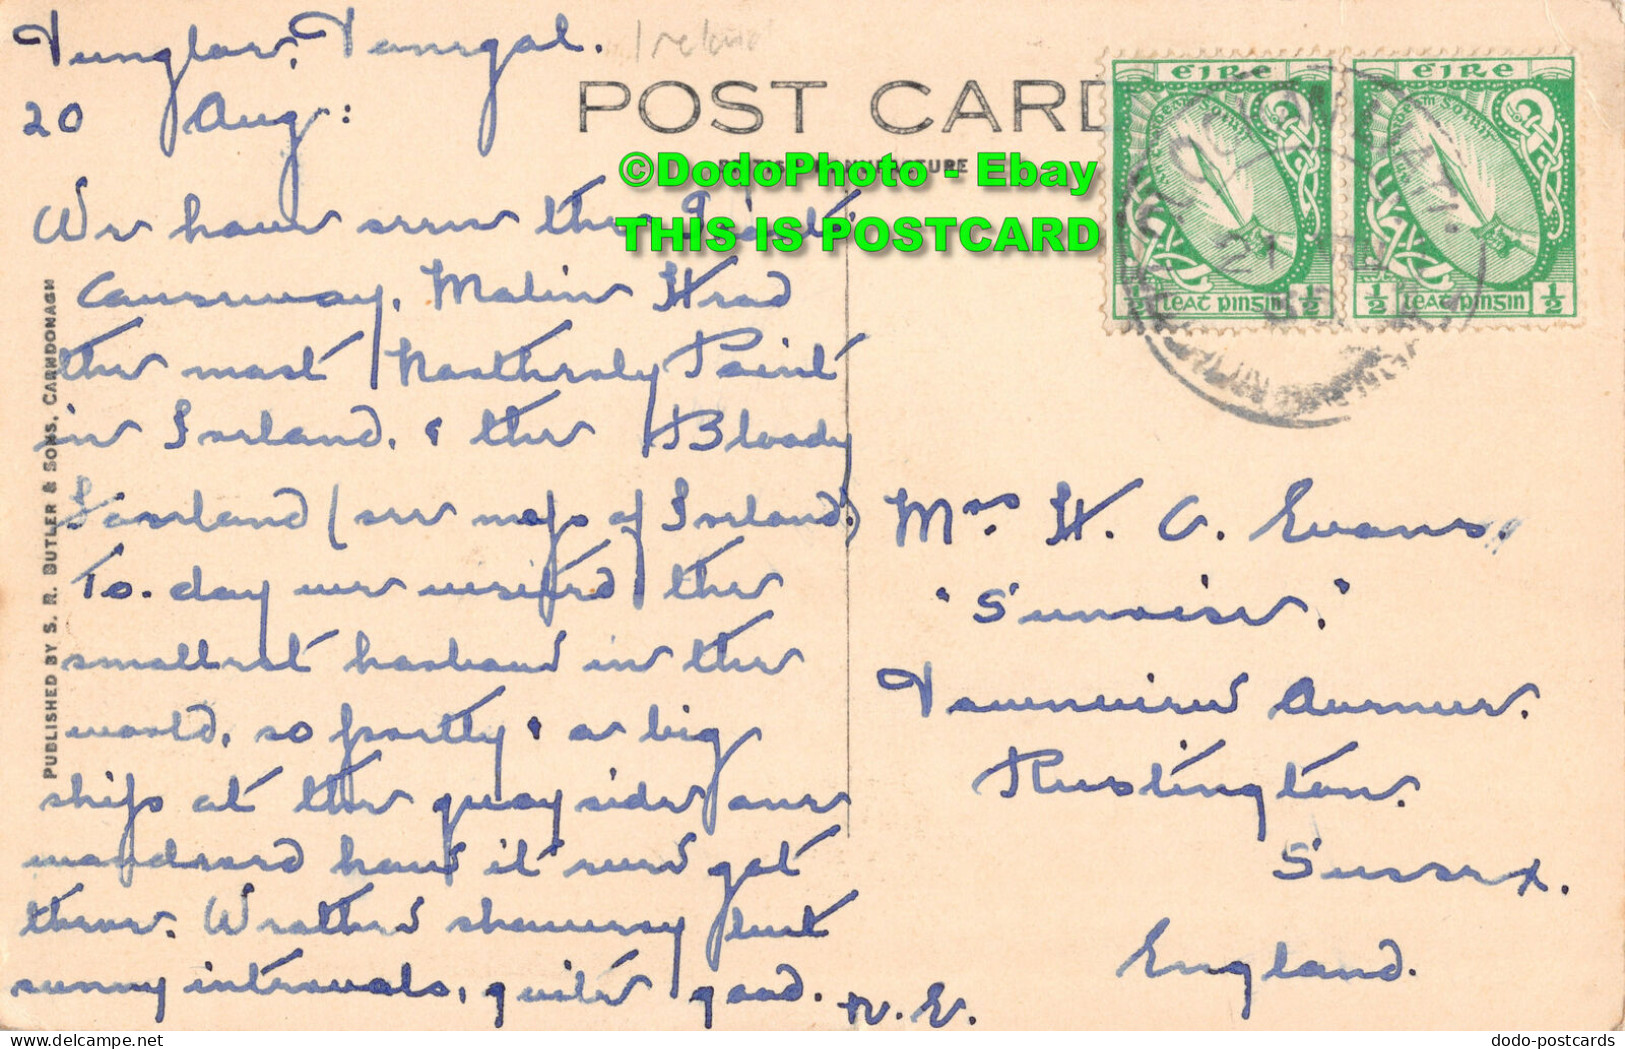 Dunglow, Donegal.
Ireland
20 Aug:
POST CARD
BRITISH MANUFACTURE
©DodoPhoto - Ebay
THIS IS POSTCARD
We have seen the Giants
Causeway, Malin Head
the most Northerly Point
in Ireland, & the Bloody
Foreland (see maps of Ireland.)
To.day we visited the
smallest harbour in the
world, so pretty & a big
ships at the quay side, one
wondered how it ever got
there. Weather showery but
sunny intervals, quite good. N.E.
PUBLISHED BY S. R. BUTLER & SONS, CARNDONAGH
éire
½ leat pingin ½
éire
½ leat pingin ½
21
Mrs. H. C. Evans.
"Sunrise."
Townview Avenue.
Rustington.
Sussex.
England.
dodo-postcards